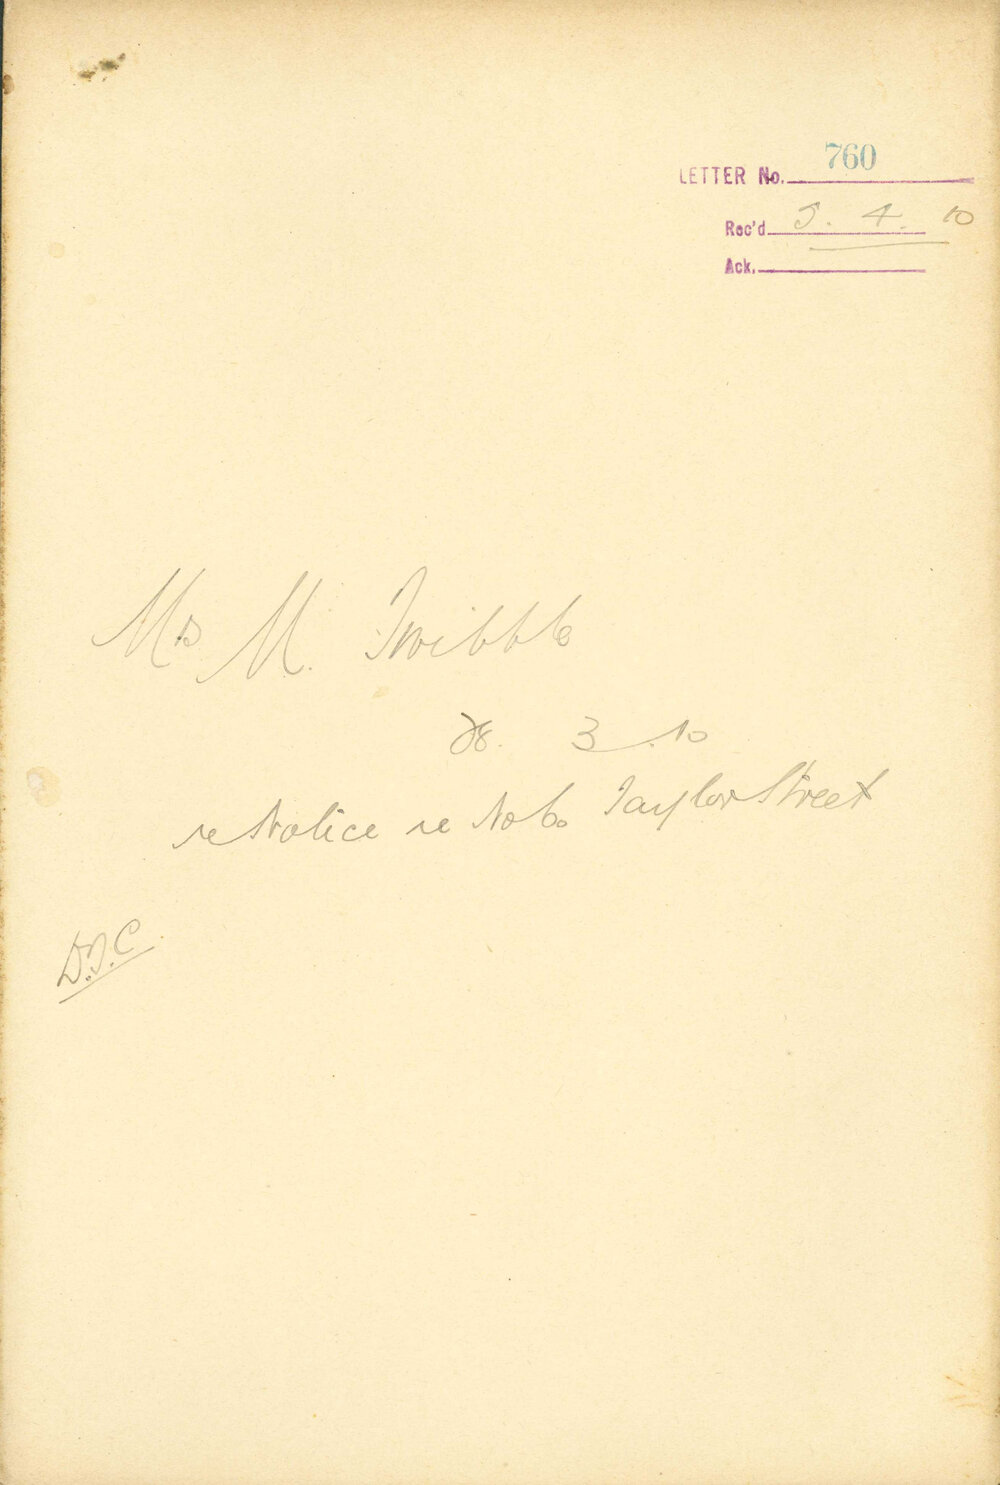 LETTER No. 760
Rec'd 5. 4. 10
Ack.
Mrs M. Tribble
28. 3. 10
re Notice re No 6. Taylor Street
D.I.C